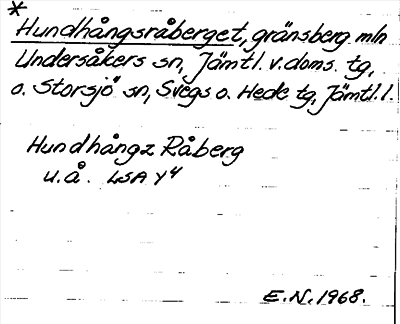 *
Hundhångsråberget, gränsberg mln
Undersåkers sn, Jämtl. v. doms. tg,
o. Storsjö sn, Svegs o. Hede tg, Jämtl. l.
Hundhångz Råberg
u.å. LSA Y4
E.N. 1968.